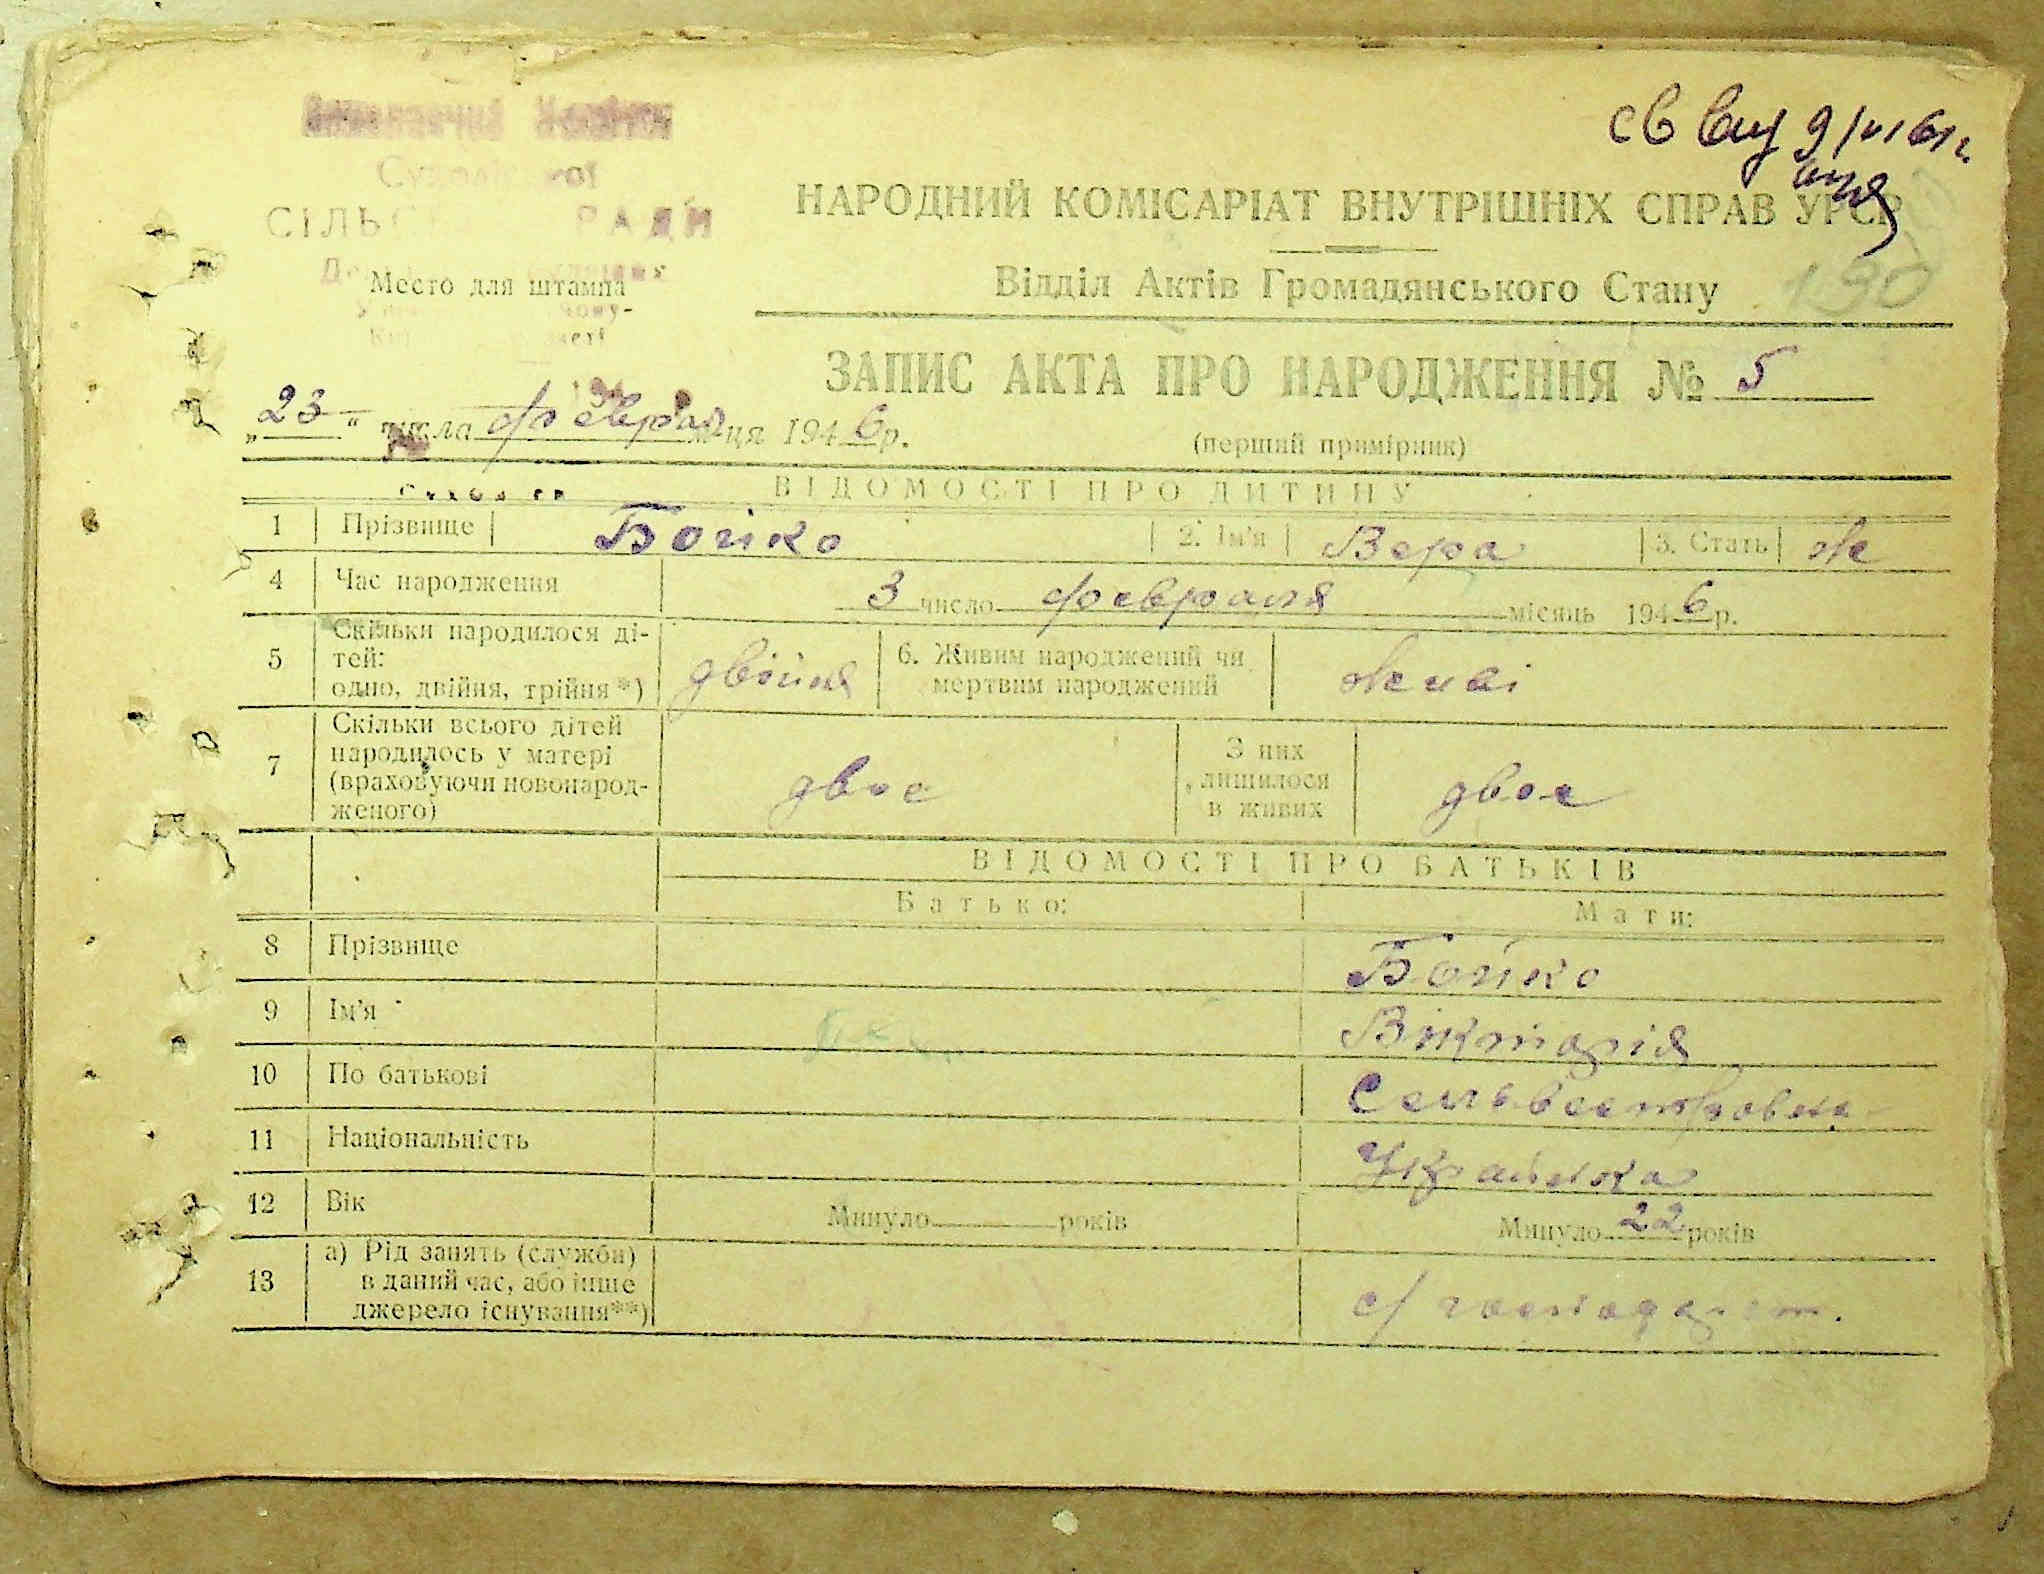 Виконавчий Комітет
СІЛЬС РАДИ
Место для штампа
св выд 9/VI 61 г.
НАРОДНИЙ КОМІСАРІАТ ВНУТРІШНІХ СПРАВ УРСР
Відділ Актів Громадянського Стану
190
ЗАПИС АКТА ПРО НАРОДЖЕННЯ № 5
„23“ числа февраля м-ця 1946 р.
(перший примірник)
ВІДОМОСТІ ПРО ДИТИНУ
1 Прізвище Бойко 2. Ім'я Вера 3. Стать Ж
4 Час народження 3 число февраля місяць 1946 р.
5 Скільки народилося ді-
тей:
одно, двійня, трійня*) двійня 6. Живим народжений чи
мертвим народжений живі
7 Скільки всього дітей
народилось у матері
(враховуючи новонарод-
женого) двое З них
лишилося
в живих двое
ВІДОМОСТІ ПРО БАТЬКІВ
Батько: Мати:
8 Прізвище Бойко
9 Ім'я Вікторія
10 По батькові Сельвестровна
11 Національність Українка
12 Вік Минуло років Минуло 22 років
13 а) Рід занять (служби)
в даний час, або інше
джерело існування**) с/господарст.